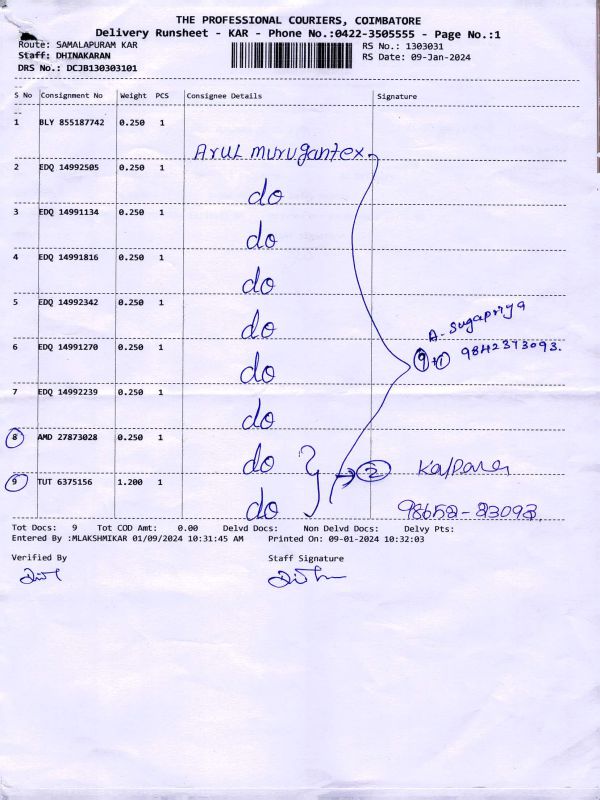 THE PROFESSIONAL COURIERS, COIMBATORE
Delivery Runsheet - KAR - Phone No.:0422-3505555 - Page No.:1
Route: SAMALAPURAM KAR RS No.: 1303031
Staff: DHINAKARAN RS Date: 09-Jan-2024
DRS No.: DCJB130303101
S No Consignment No Weight PCS Consignee Details Signature
1 BLY 855187742 0.250 1
Arul murugantex
2 EDQ 14992505 0.250 1
do
3 EDQ 14991134 0.250 1
do
4 EDQ 14991816 0.250 1
do
5 EDQ 14992342 0.250 1
do
A. Sugapriya
6 EDQ 14991270 0.250 1
do 9+1 9842373093.
7 EDQ 14992239 0.250 1
do
8 AMD 27873028 0.250 1
do 2
9 TUT 6375156 1.200 1
do 98658-83093
Tot Docs: 9 Tot COD Amt: 0.00 Delvd Docs: Non Delvd Docs: Delvy Pts:
Entered By :MLAKSHMIKAR 01/09/2024 10:31:45 AM Printed On: 09-01-2024 10:32:03
Verified By Staff Signature